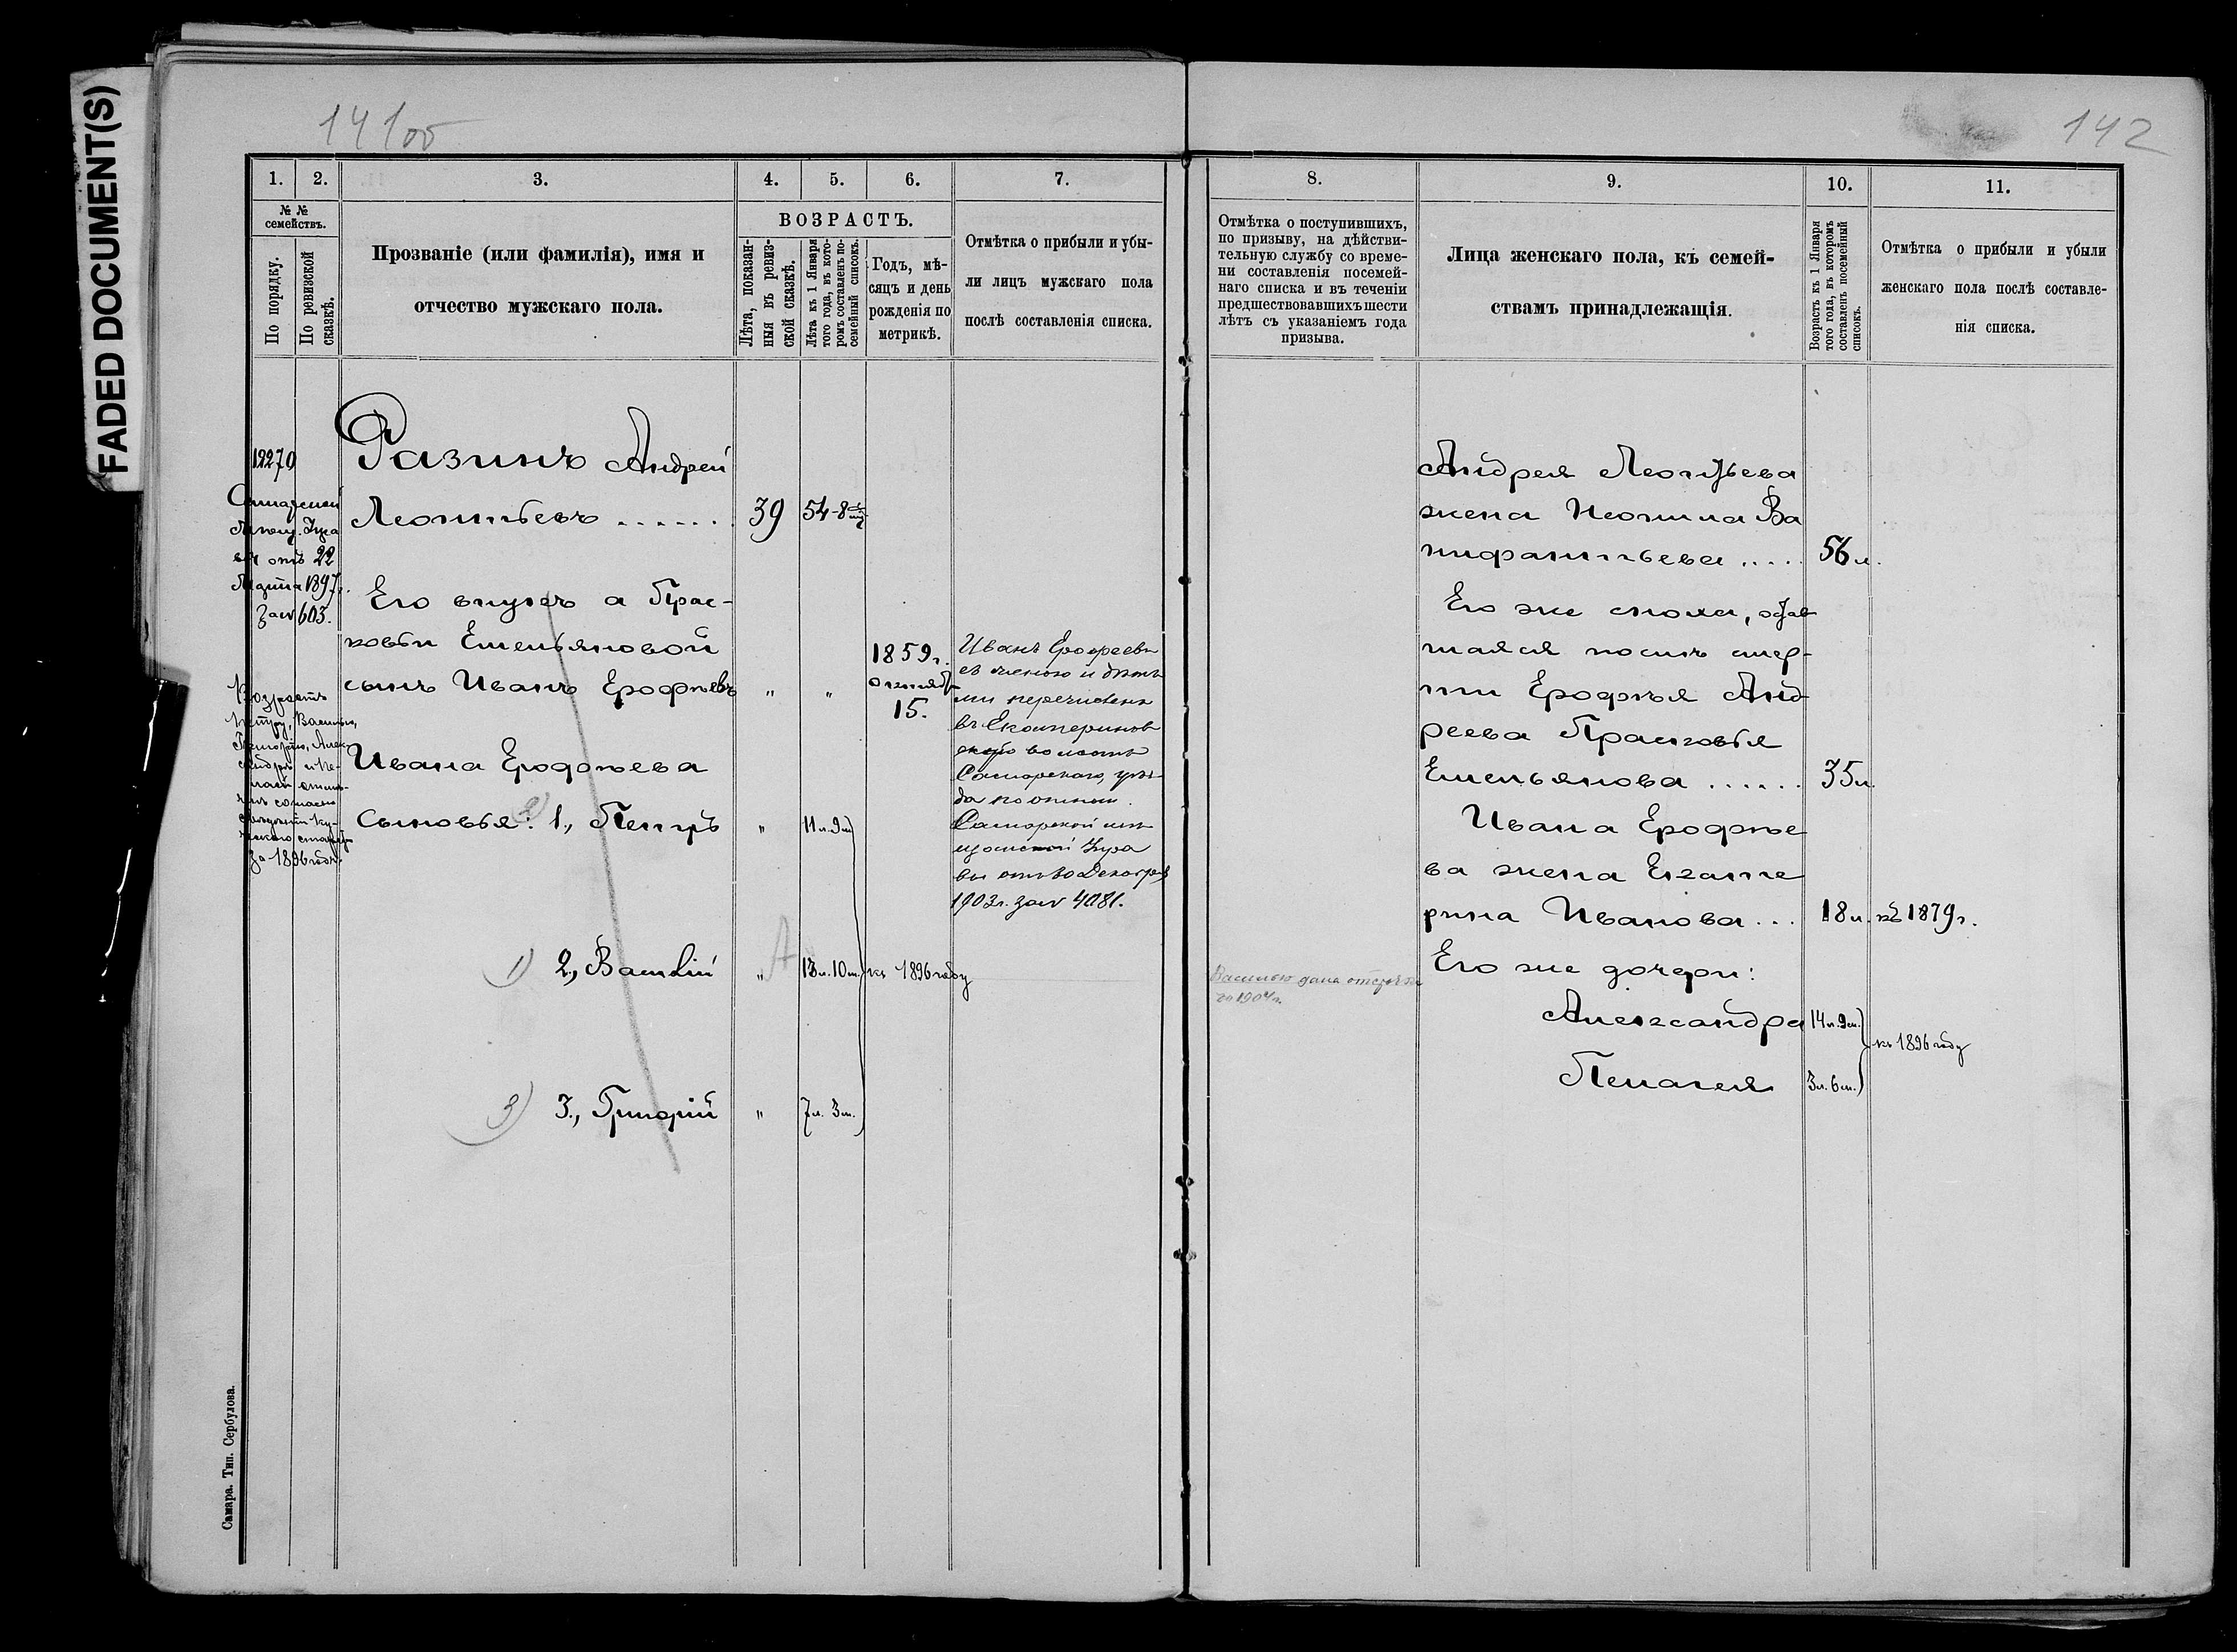 FADED DOCUMENT(S)
141об
142
1.
2.
3.
4.
5.
6.
7.
№ №
семействъ.
По порядку.
По ревизской
сказкѣ.
Прозваніе (или фамилія), имя и
отчество мужскаго пола.
ВОЗРАСТЪ.
Лѣта, показан-
ныя въ ревиз-
ской сказкѣ.
Лѣта къ 1 Января
того года, въ кото-
ромъ составленъ по-
семейный списокъ.
Годъ, мѣ-
сяцъ и день
рожденія по
метрикѣ.
Отмѣтка о прибыли и убы-
ли лицъ мужскаго пола
послѣ составленія списка.
12270
Разинъ Андрей
Самарской
Леонтьевъ ...... 39 54-8
отъ 22
Марта 1897 г.
за № 603.
Его внукъ а Прас-
ковьи Емельяновой
сынъ Иванъ Ерофѣевъ " "
1859 г.
октября
15.
Иванъ Ерофеевъ
съ женою и дѣть
ми перечисленъ
въ Екатеринов
скую волость
Самарскаго уѣз-
да по отнош.
Самарской мѣ
щанской Упра
вы отъ 30 Декабря
1903 г. за № 4081.
Возрастъ
Петру, Василію,
Григорію, Алек-
сандрѣ и Пе-
лагеи
согласно
за 1896 годъ.
Ивана Ерофѣева
сыновья: 2) 1., Петръ " 11 л. 9 м.
1) 2., Василій " 13 л. 10 м. къ 1896 году
3) 3., Григорій " 7 л. 3 м.
Самара. Тип. Сербулова.
8.
9.
10.
11.
Отмѣтка о поступившихъ,
по призыву, на дѣйстви-
тельную службу со време-
ни составленія посемей-
наго списка и въ теченіи
предшествовавшихъ шести
лѣтъ съ указаніемъ года
призыва.
Лица женскаго пола, къ семей-
ствамъ принадлежащія.
Возрастъ къ 1 Января
того года, въ которомъ
составленъ посемейный
списокъ.
Отмѣтка о прибыли и убыли
женскаго пола послѣ составле-
нія списка.
Андрея Леонтьева
жена Неонила Ва
нифантьева .... 56 л.
Его же сноха, остав
шаяся послѣ смер-
ти Ерофѣя Анд-
реева Прасковья
Емельянова ...... 35 л.
Ивана Ерофѣе
ва жена Екате
рина Иванова ... 18 л. къ 1879 г.
Его же дочери:
Василію дана отсрочка
до 1904 г.
Александра 14 л. 9 м.
къ 1896 году
Пелагея 3 л. 6 м.